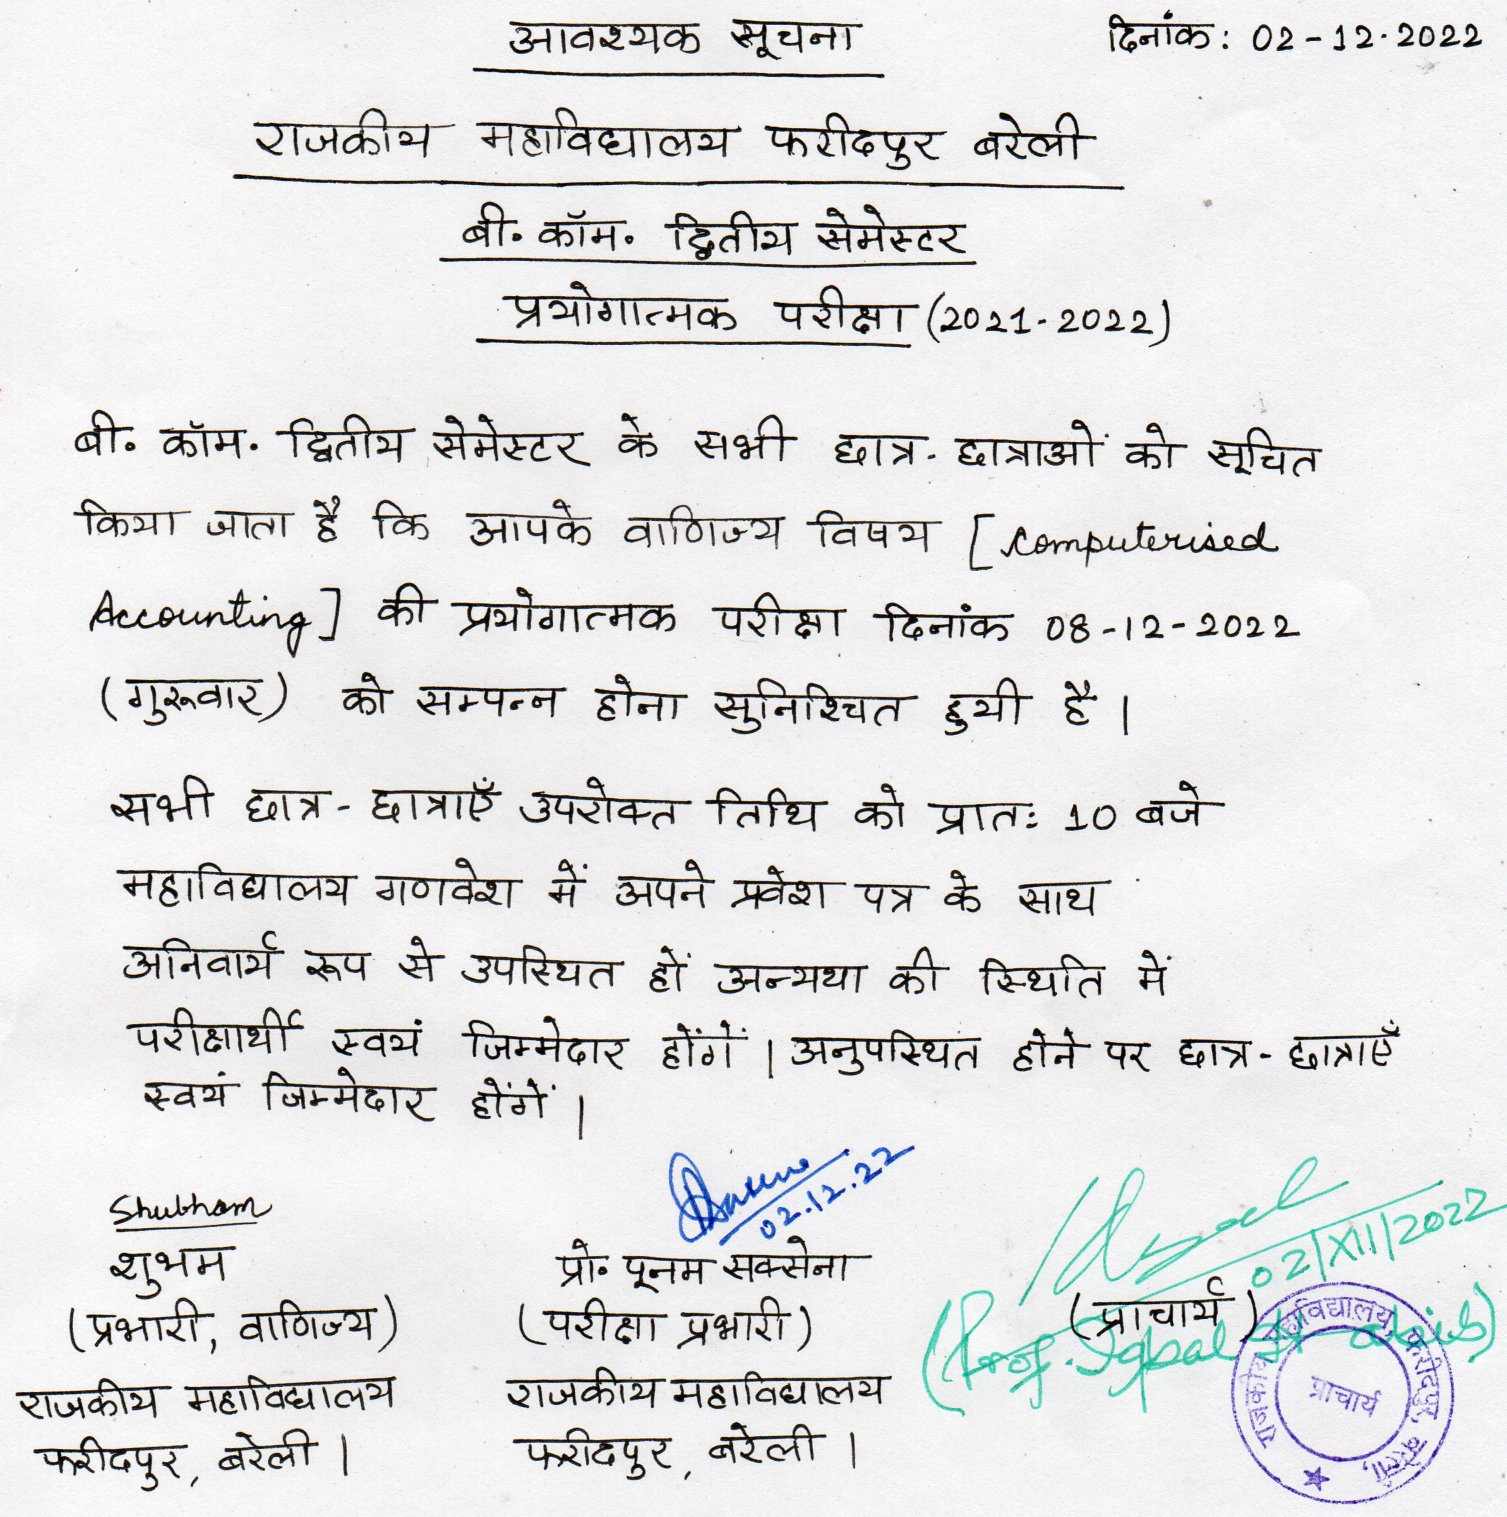 आवश्यक सूचना
दिनांक: 02-12-2022
राजकीय महाविद्यालय फरीदपुर बरेली
बी. कॉम. द्वितीय सेमेस्टर
प्रयोगात्मक परीक्षा (2021-2022)
बी. कॉम. द्वितीय सेमेस्टर के सभी छात्र-छात्राओं को सूचित
किया जाता है कि आपके वाणिज्य विषय [Computerised
Accounting] की प्रयोगात्मक परीक्षा दिनांक 08-12-2022
(गुरूवार) को सम्पन्न होना सुनिश्चित हुयी है।
सभी छात्र-छात्राएँ उपरोक्त तिथि को प्रातः 10 बजे
महाविद्यालय गणवेश में अपने प्रवेश पत्र के साथ
अनिवार्य रूप से उपस्थित हों अन्यथा की स्थिति में
परीक्षार्थी स्वयं जिम्मेदार होंगें। अनुपस्थित होने पर छात्र-छात्राएँ
स्वयं जिम्मेदार होंगें।
Shubham
02.12.22
02/XII/2022
शुभम
प्रो. पूनम सक्सेना
(प्रभारी, वाणिज्य)
(परीक्षा प्रभारी)
(प्राचार्य)
(Prof. Iqbal
राजकीय महाविद्यालय
राजकीय महाविद्यालय
फरीदपुर, बरेली।
फरीदपुर, बरेली।
राजकीय महाविद्यालय, फरीदपुर, बरेली
प्राचार्य